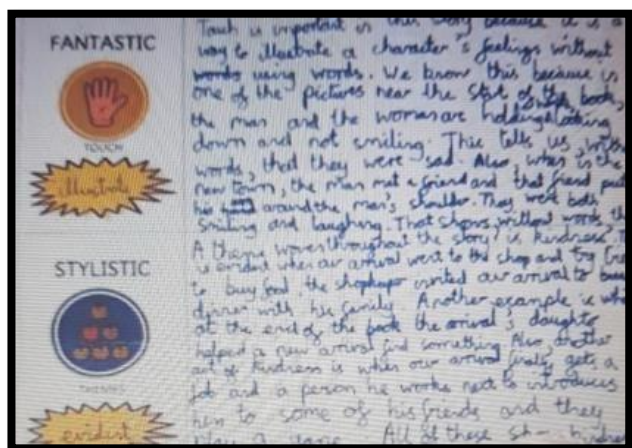 FANTASTIC
TOUCH
illustrate
Touch is important in this story because it is a
way to illustrate a character's feelings without
words using words. We know this because in
one of the pictures near the start of the book,
the man and the woman are holding looking
down and not smiling. This tells us, without
words, that they were sad. Also, when in the
new town, the man met a friend and that friend put
his around the man's shoulder. They were both
smiling and laughing. That shows, without words, th
STYLISTIC
THEMES
evidint
A theme woven throughout the story is kindness. T
is evident when our arrival went to the shop and try
to buy food, the shopkeeper invited our arrival to
dinner with his family. Another example is whe
at the end of the book the arrival's daughter
helped a new arrival find something. Also, another
act of kindness is when our arrival finally gets a
job and a person he works next to introduces
him to some of his friends and they
play a game. All of these